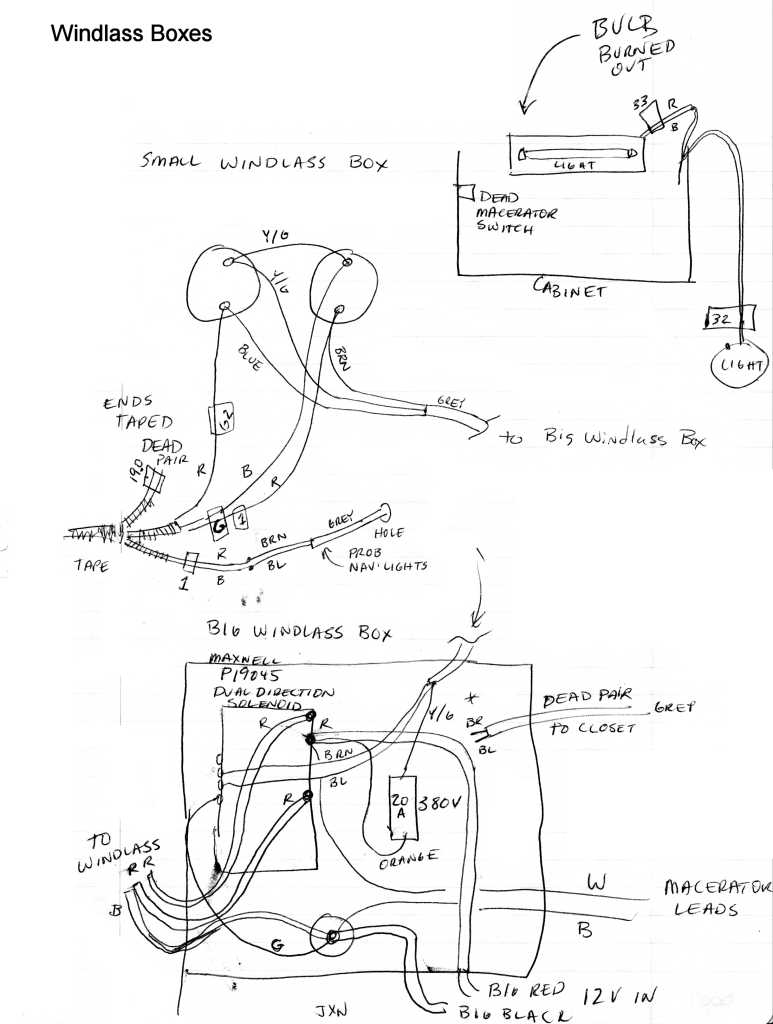 Windlass Boxes
BULB
BURNED
OUT
33
R
B
LIGHT
DEAD
MACERATOR
SWITCH
CABINET
32
LIGHT
SMALL WINDLASS BOX
Y/G
Y/G
BLUE
BRN
GREY
to Big Windlass Box
ENDS
TAPED
DEAD
PAIR
190
G2
R
B
R
G
1
TAPE
1
R
B
BRN
BL
GREY
HOLE
PROB
NAV. LIGHTS
BIG WINDLASS BOX
MAXWELL
P19045
DUAL DIRECTION
SOLENOID
R
R
BRN
BL
R
Y/G
20
A
380V
ORANGE
*
BR
BL
DEAD PAIR
TO CLOSET
GREY
TO
WINDLASS
R R
B
G
W
B
MACERATOR
LEADS
BIG RED
BIG BLACK
12V IN
JXN